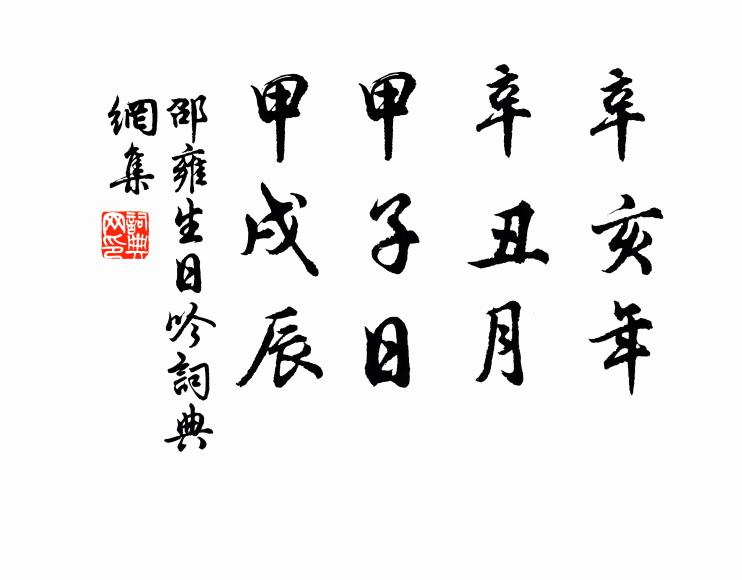 辛亥年
辛丑月
甲子日
甲戌辰
邵雍生日吟詞典
網集
詞典
网印